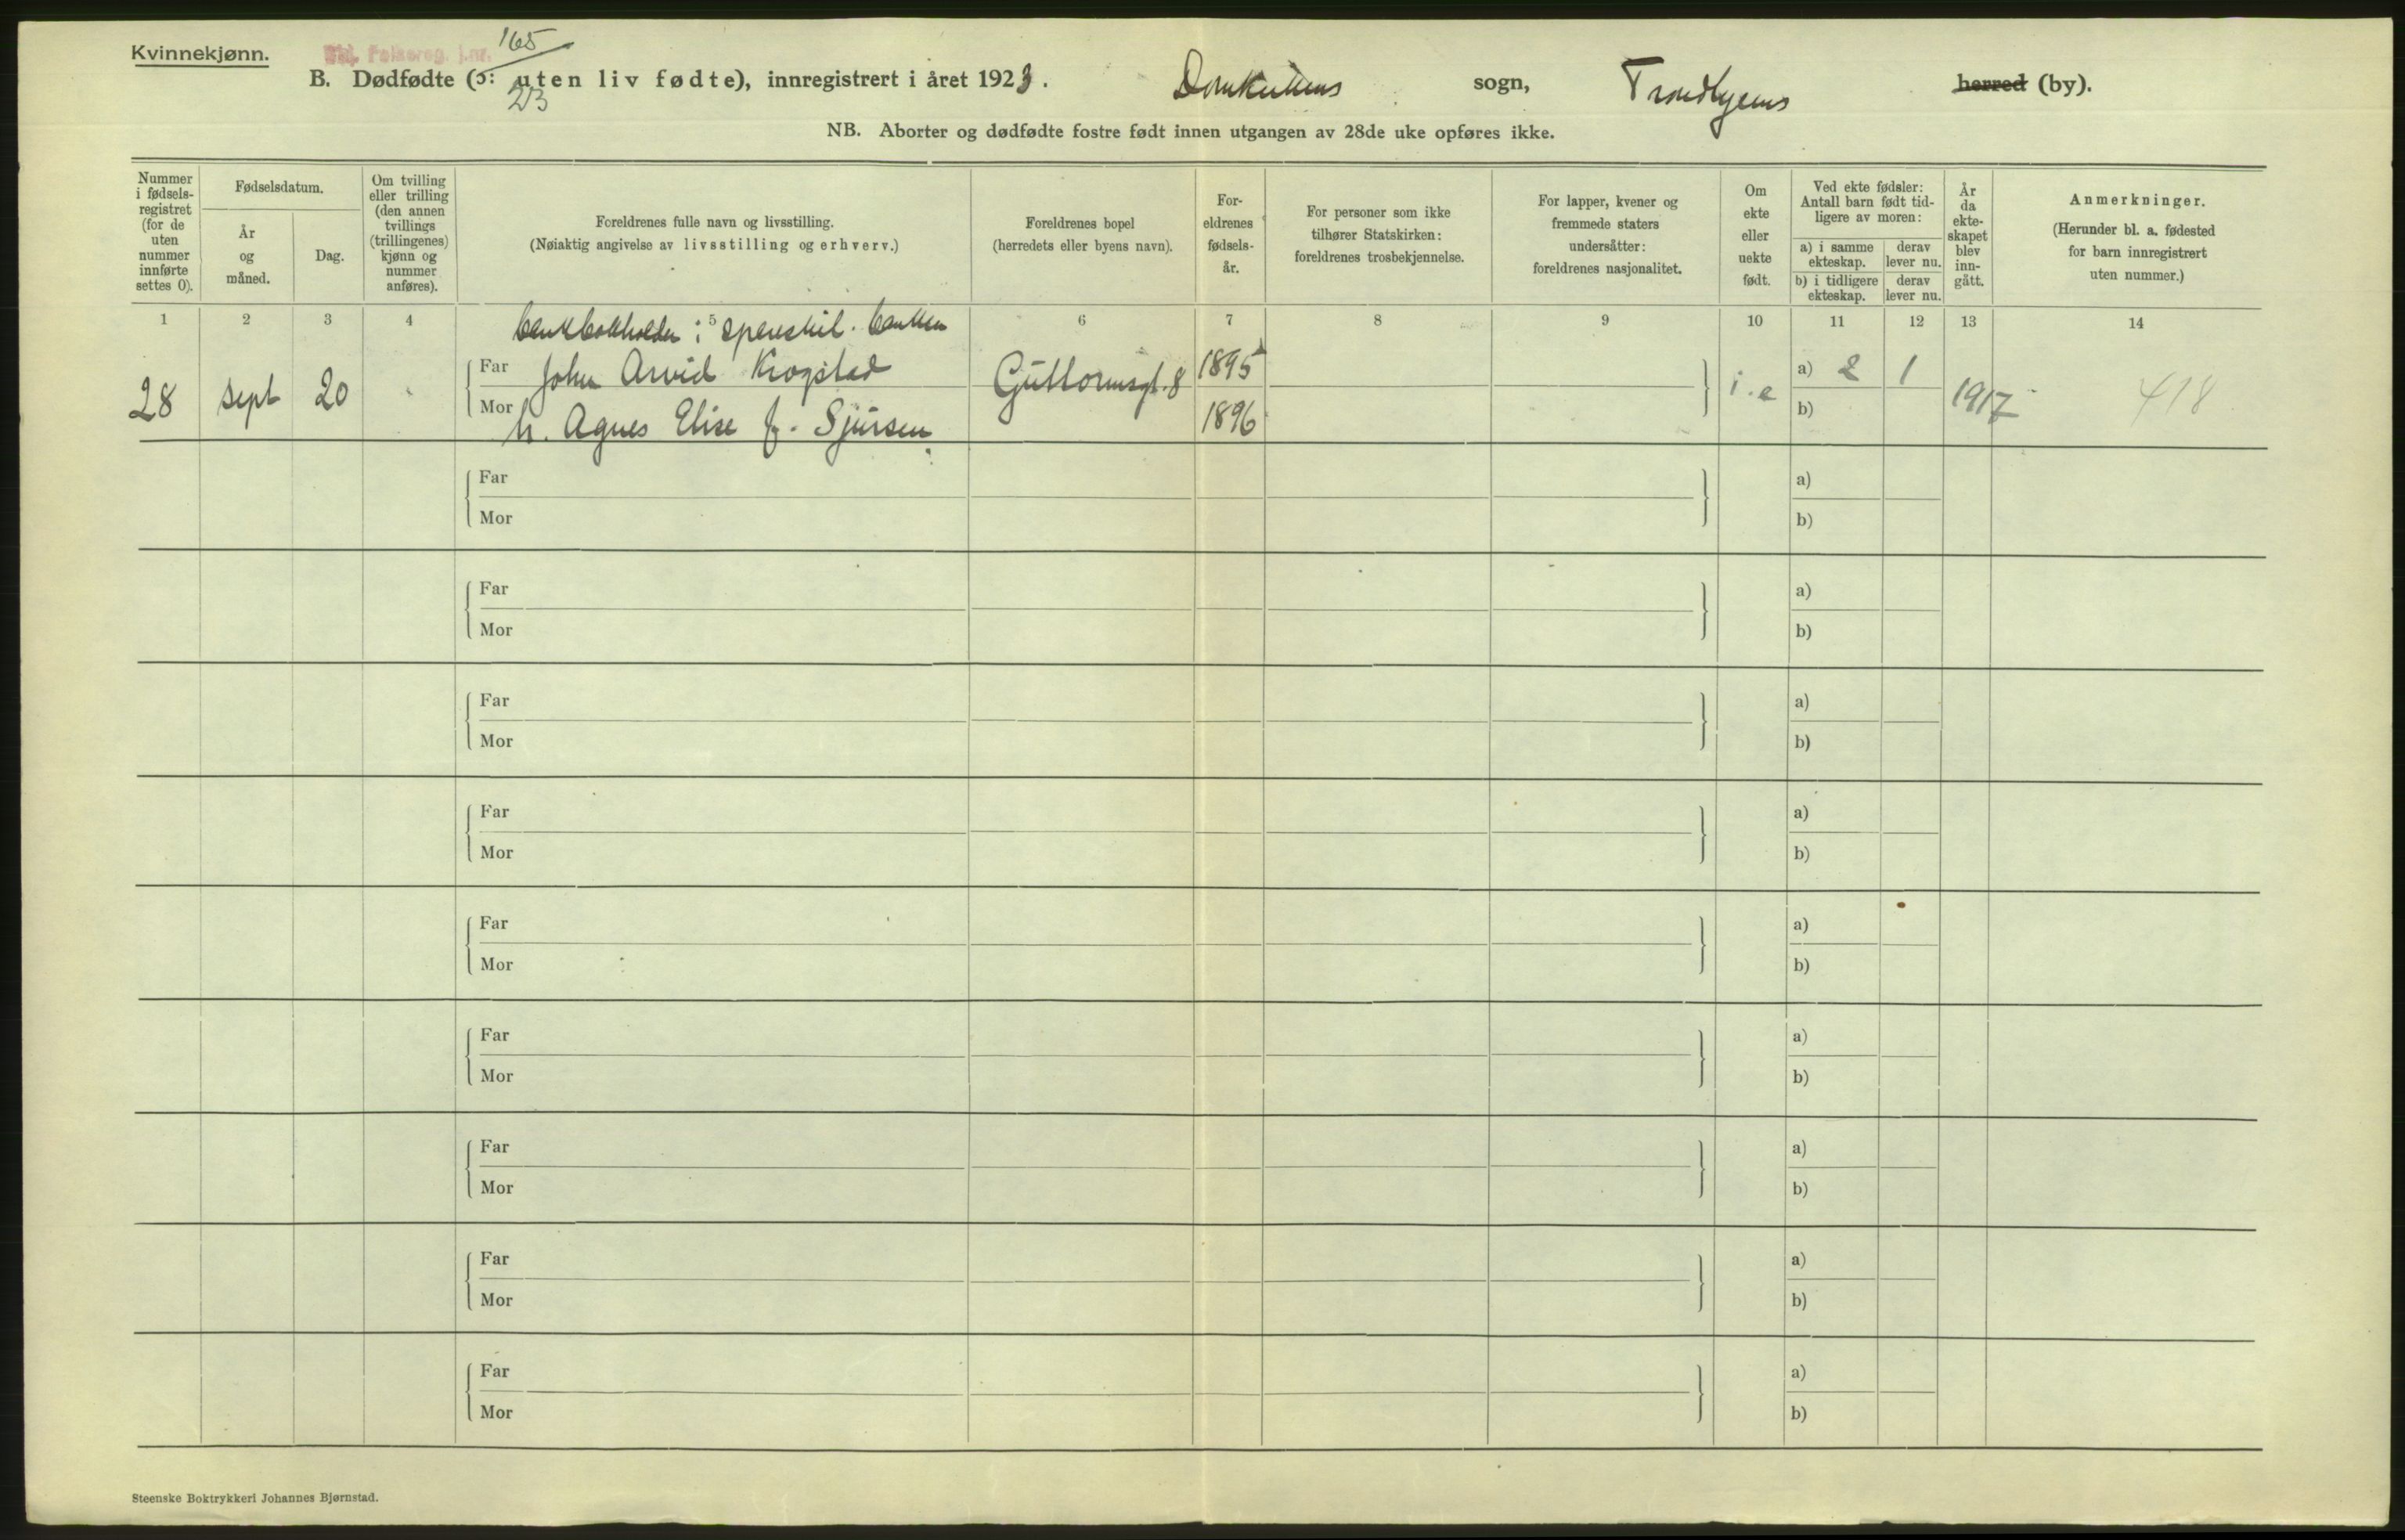 Kvinnekjønn.
165
23
B. Dødfødte (ɔ: uten liv fødte), innregistrert i året 1923. Domkirkens sogn, Trondhjems herred (by).
NB. Aborter og dødfødte fostre født innen utgangen av 28de uke opføres ikke.
Nummer i fødsels-registret (for de uten nummer innførte settes 0).
Fødselsdatum.
År og måned.
Dag.
Om tvilling eller trilling (den annen tvillings (trillingenes) kjønn og nummer anføres).
Foreldrenes fulle navn og livsstilling.
(Nøiaktig angivelse av livsstilling og erhverv.)
Foreldrenes bopel
(herredets eller byens navn).
For-eldrenes fødsels-år.
For personer som ikke tilhører Statskirken: foreldrenes trosbekjennelse.
For lapper, kvener og fremmede staters undersåtter: foreldrenes nasjonalitet.
Om ekte eller uekte født.
Ved ekte fødsler: Antall barn født tid-ligere av moren:
a) i samme ekteskap.
derav lever nu.
b) i tidligere ekteskap.
derav lever nu.
År da ekte-skapet blev inn-gått.
Anmerkninger.
(Herunder bl. a. fødested for barn innregistrert uten nummer.)
1 2 3 4 5 6 7 8 9 10 11 12 13 14
bankbokholder i spareskil. banken
Far John Arvid Krogstad 1895 a) 2 1
28 sept 20 Guttormsgt. 8 i.e 1917 418
Mor h. Agnes Elise f. Sjursen 1896 b)
Far a)
Mor b)
Far a)
Mor b)
Far a)
Mor b)
Far a)
Mor b)
Far a)
Mor b)
Far a)
Mor b)
Far a)
Mor b)
Far a)
Mor b)
Far a)
Mor b)
Steenske Boktrykkeri Johannes Bjørnstad.